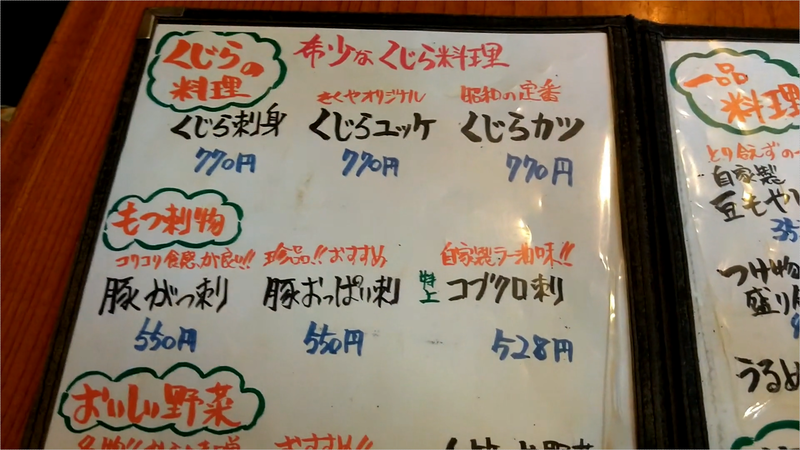 くじらの
料理
希少なくじら料理
きくやオリジナル
昭和の定番
くじら刺身
くじらユッケ
くじらカツ
770円
770円
770円
もつ刺物
コリコリ食感が良い!!
珍品!!おすすめ
自家製ラー油味!!
豚がっ刺
豚おっぱい刺
特上
コブクロ刺
550円
550円
528円
おいしい野菜
おすすめ!!
一品
料理
とり合えずの一
自家製
豆もやし
35
つけ物
盛り
うるめ